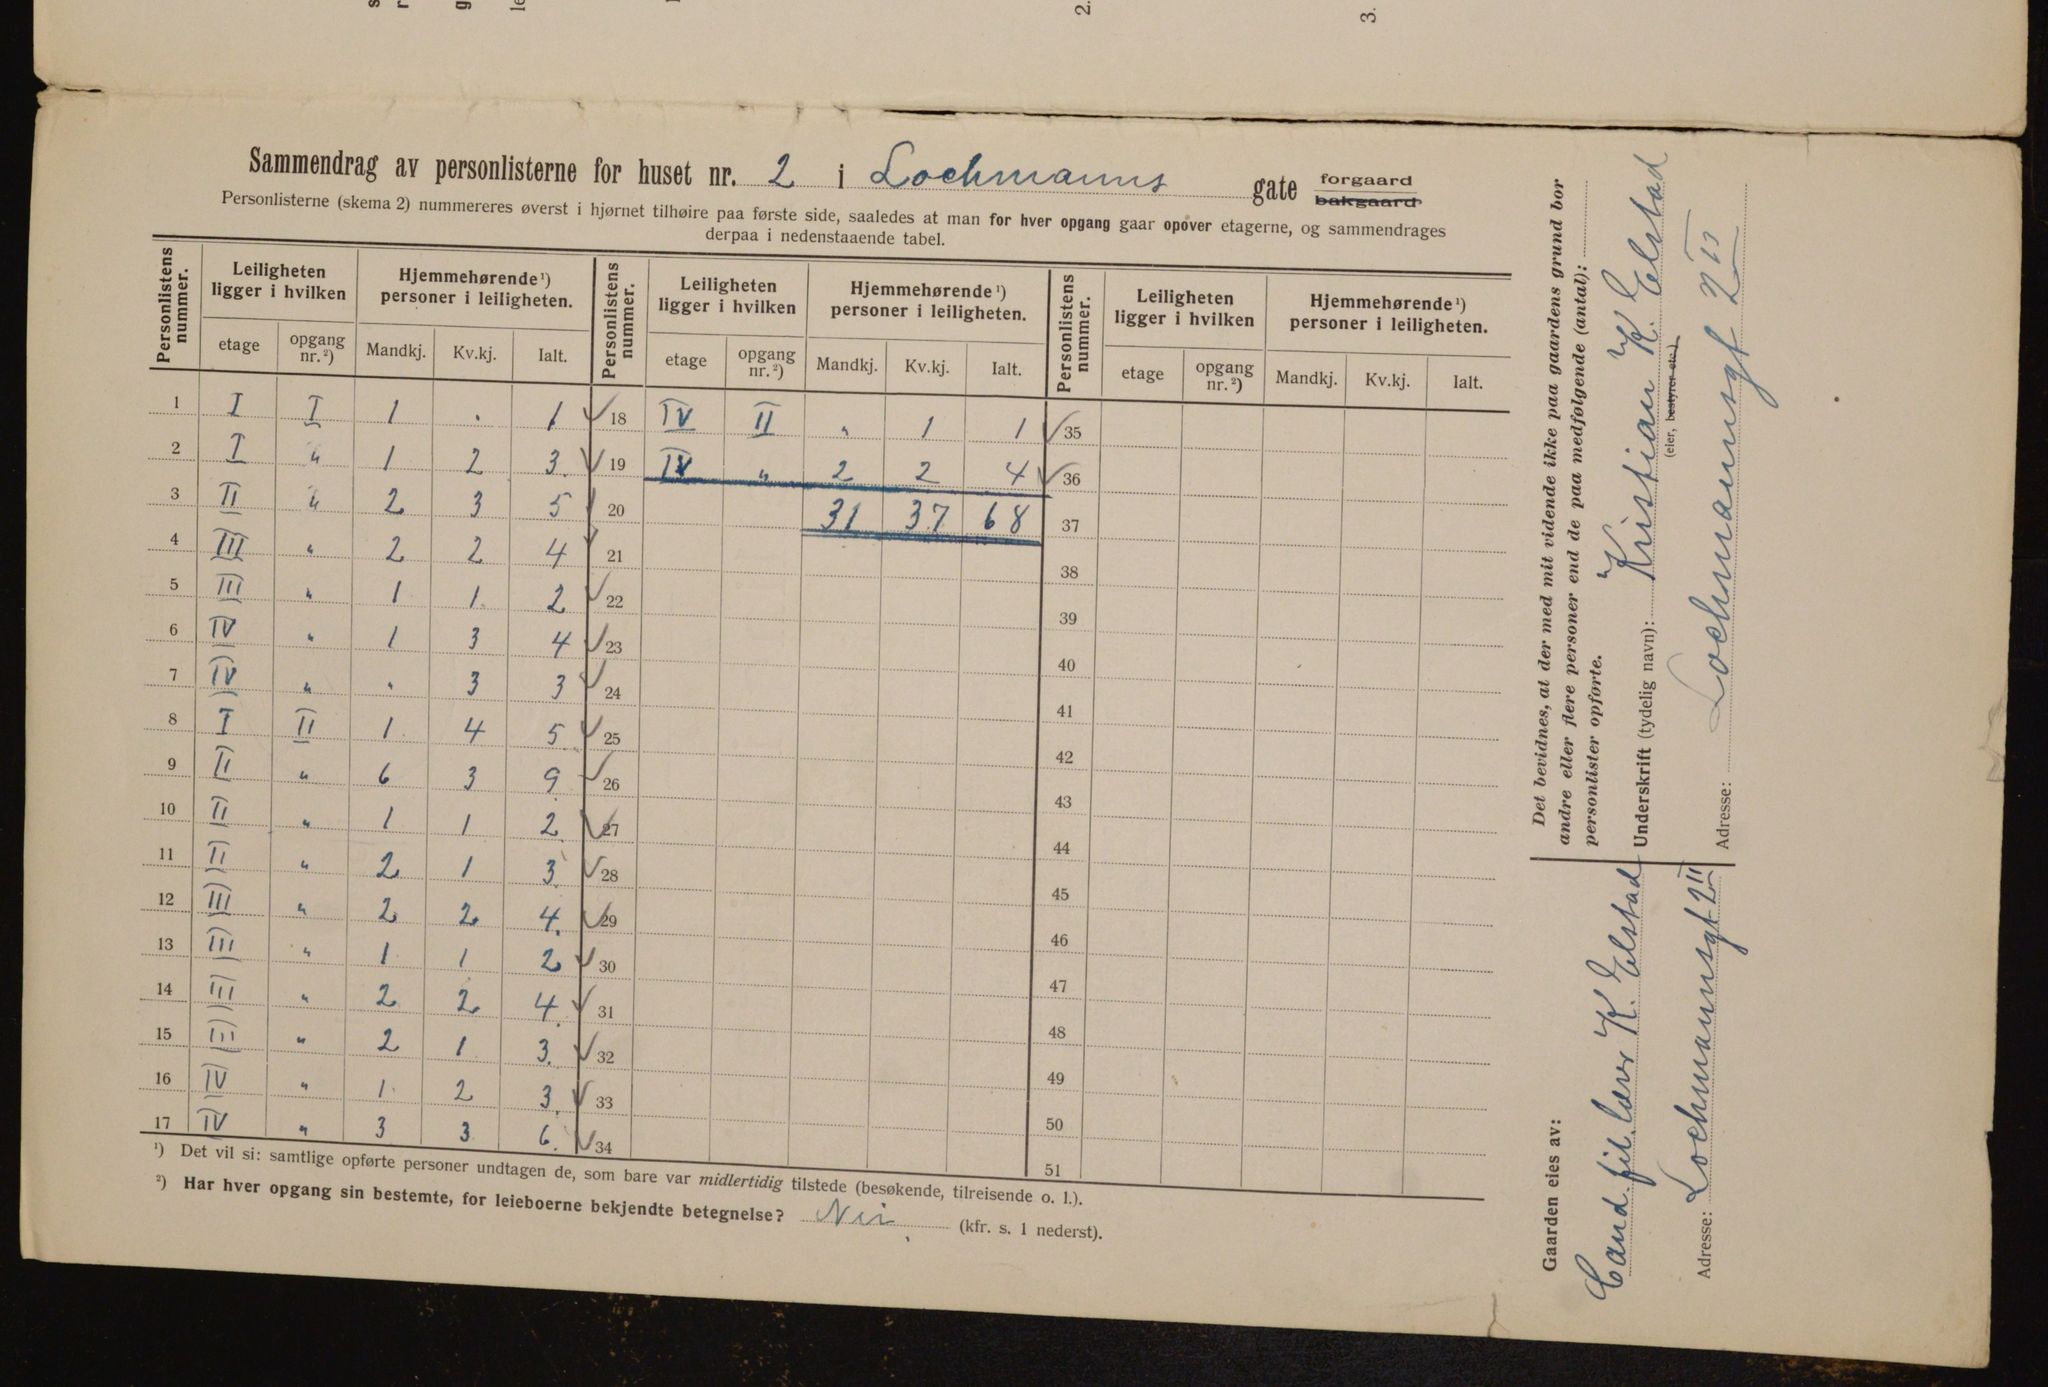 Sammendrag av personlisterne for huset nr. 2 i Lochmanns gate forgaard bakgaard
Personlisterne (skema 2) nummereres øverst i hjørnet tilhøire paa første side, saaledes at man for hver opgang gaar opover etagerne, og sammendrages
derpaa i nedenstaaende tabel.
Personlistens nummer. Leiligheten ligger i hvilken Hjemmehørende ¹) personer i leiligheten. Personlistens nummer. Leiligheten ligger i hvilken Hjemmehørende ¹) personer i leiligheten. Personlistens nummer. Leiligheten ligger i hvilken Hjemmehørende ¹) personer i leiligheten.
etage opgang nr. ²) Mandkj. Kv.kj. Ialt. etage opgang nr. ²) Mandkj. Kv.kj. Ialt. etage opgang nr. ²) Mandkj. Kv.kj. Ialt.
1 I I 1 „ 1 ✓ 18 IV II „ 1 1 ✓ 35
2 I „ 1 2 3. ✓ 19 IV „ 2 2 4 ✓ 36
3 II „ 2 3 5 ✓ 20 31 37 68 37
4 III „ 2 2 4 ✓ 21 38
5 III „ 1 1 2 ✓ 22 39
6 IV „ 1 3 4 ✓ 23 40
7 IV „ „ 3 3 ✓ 24 41
8 I II 1 4 5 ✓ 25 42
9 II „ 6 3 9 ✓ 26 43
10 II „ 1 1 2 ✓ 27 44
11 II „ 2 1 3 ✓ 28 45
12 III „ 2 2 4. ✓ 29 46
13 III „ 1 1 2 ✓ 30 47
14 III „ 2 2 4. ✓ 31 48
15 III „ 2 1 3. ✓ 32 49
16 IV „ 1 2 3. ✓ 33 50
17 IV „ 3 3 6. ✓ 34 51
¹) Det vil si: samtlige opførte personer undtagen de, som bare var midlertidig tilstede (besøkende, tilreisende o. l.).
²) Har hver opgang sin bestemte, for leieboerne bekjendte betegnelse? Nei (kfr. s. 1 nederst).
Det bevidnes, at der med mit vidende ikke paa gaardens grund bor
andre eller flere personer end de paa medfølgende (antal):
personlister opførte.
Underskrift (tydelig navn): Kristian K. Elstad
(eier, bestyrer etc.)
Adresse: Lochmannsgt 2 II
Gaarden eies av:
Cand. fil. lærer K. Elstad
Adresse: Lochmannsgt 2 II
2.
3.